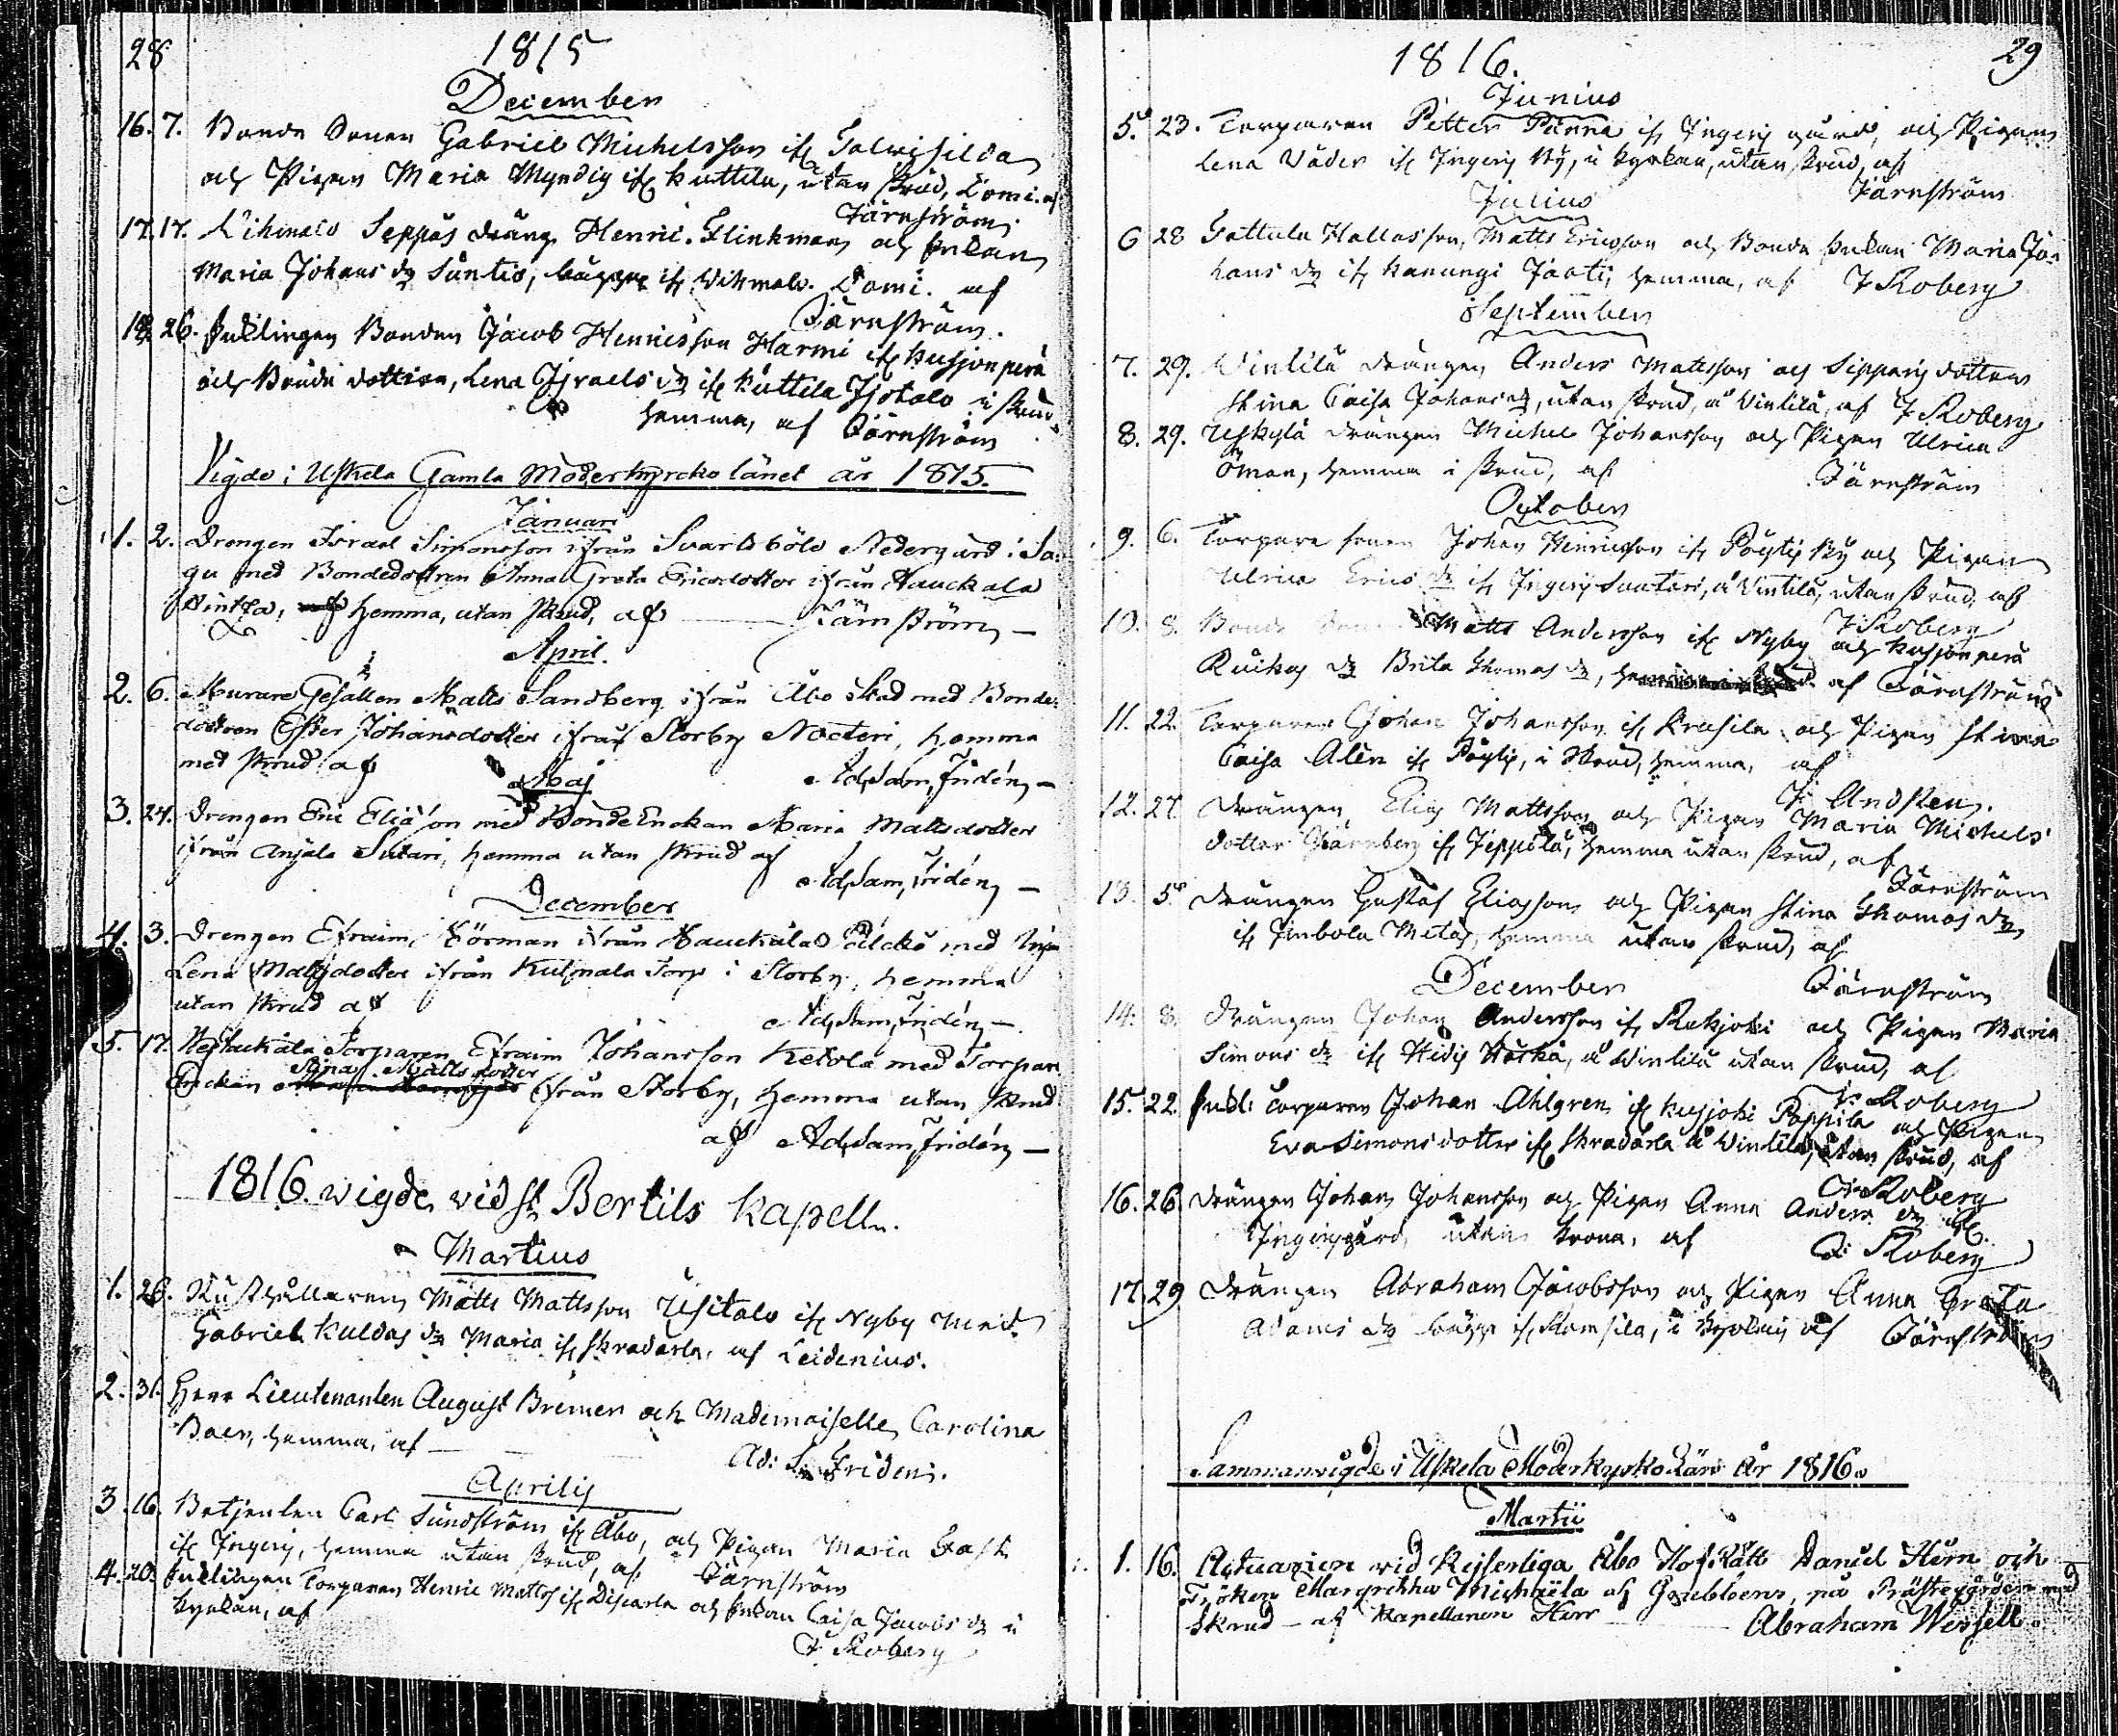 28
1815
December
16. 7. Bonde Sonen Gabriel Michelsson if
och Pigan Maria Myndig if Kuttila, utan skrud, Domi. af
Järnström
17. 17. Wihmalo Seppäs dräng Henric Flinkman och Enkan
Maria Johans dr Säntis, bägge if Wihmalo. Domi. af
Järnström.
18. 26. Enklingen Bonden Jacob Henricsson Harmi if Kusjonperä
och Bonde dottren, Lena Israels dr if Kuttila Isotalo i skrud
hemma, af Järnström
Vigde i Uskela Gamla Moderkyrcko länet år 1815.
Januari
1. 2. Drengen Israel Simonsson ifrån Svartsböle Nedergård i Sa-
gu med Bondedottren Anna Greta Ericsdotter ifrån Hauckala
hemma, utan skrud, af Järnström
April.
2. 6. Murare Gesällen Matts Sandberg ifrån Åbo Stad med Bonde-
dottren Ester Johansdotter ifrån Storby Nocteri, hemma
med skrud af Ad. Sam. Fridén
Maj
3. 24. Drengen Eric Eliæson med Bonde Enckan Maria Mattsdotter
ifrån Anjala Sutari, hemma utan skrud af
Ad. Sam. Fridén
December
4. 3. Drengen Efraim Törman ifrån Hauckala med
Lena Mattsdotter ifrån Kulmala Torp i Storby, hemma
utan skrud af
Ad. Sam. Fridén
5. 17. Torparen Efraim Johansson Ketola med Torpare
Stina Matts dotter
Enckan ifrån Storby, hemma utan skrud
af Ad. Sam. Fridén
1816. wigde vid St Bertils Kapell.
Martius
1. 26. Rusthållaren Matts Mattsson Usitalo if Nyby med
Gabriel Kuldas dr Maria if Skradarla, af Leidenius.
2. 31. Herr Lieutenanten August Bremer och Mademoiselle Carolina
Baer, hemma, af
Ad: S. Fridén.
Aprilis
3. 16. Betjenten Carl Sundström if Åbo, och Pigan Maria Fast
if Ingeris, hemma utan skrud, af Järnström
4. 20. Enklingen Torparen Henric Matts if och Enkan Caisa Jacobs dr i
kyrkan, af
J. Roberg
1816.
29
Junius
5. 23. Torparen Petter Panna if Ingeris gård, och Pigan
Lena Väder if Ingeris by, i kyrkan, utan skrud, af
Järnström
Julius
6 28 Hallasson, Matts Ericsson och Bonde Enkan Maria Jo-
hans dr if Kanungi Jaati, hemma, af J Roberg
September
7. 29. Wintilä drängen Anders Mattsson och dottern
Stina Caisa Johansdr, utan skrud, å Vintilä, af J Roberg
8. 29. Uskylä drängen Michel Johansson och Pigan Ulrica
Öman, hemma i skrud, af Järnström
October
9. 6. Torpare sonen Johan Henricsson if Pöytis by och Pigan
Ulrica Erics dr if Ingeris Suutari, å Vintilä, utan skrud, af
J Roberg
10. 8. Bonde Matts Andersson if Nyby och Kusjonperä
dr Brita Thomas dr, af Järnström
11. 22. Torparen Johan Johansson if Krasila och Pigan Stina
Caisa Alén if Pöytis, i skrud, hemma, af
J. Andsten.
12. 27. Drängen Elias Mattsson och Pigan Maria Michels
dotter Stärnberg if Seppälä, hemma utan skrud, af
Järnström
13. 5. Drängen Gustaf Eliasson och Pigan Stina Thomas dr
if hemma utan skrud, af
Järnström
December
14. 8. Drängen Johan Andersson if Rekjoki och Pigan Maria
Simons dr if Hidis Kärkä, å Wintilä utan skrud, af
J. Roberg
15. 22. Enkl: Torparen Johan Ahlgren if Kusjoki Pappila och Pigan
Eva Simons dotter if Skradarla å Wintilä, utan skrud, af
J. Roberg
16. 26. Drängen Johan Johansson och Pigan Anna Anders dr if
Ingerisgård, utan krona, af J. Roberg
17. 29 Drängen Abraham Jacobsson och Pigan Anna Greta
Adams dr bägge if Romsila, i kyrkan af Järnström
Sammanvigde i Uskela Moderkyrko Län År 1816.
Martii
1. 16. Actuarien vid Kejserliga Åbo HofRätt Daniel Hurn och
Fröken Margretha Michaëla af Grubbens, på Prästegården med
Skrud – af Kapellanen Herr Abraham Wessell.